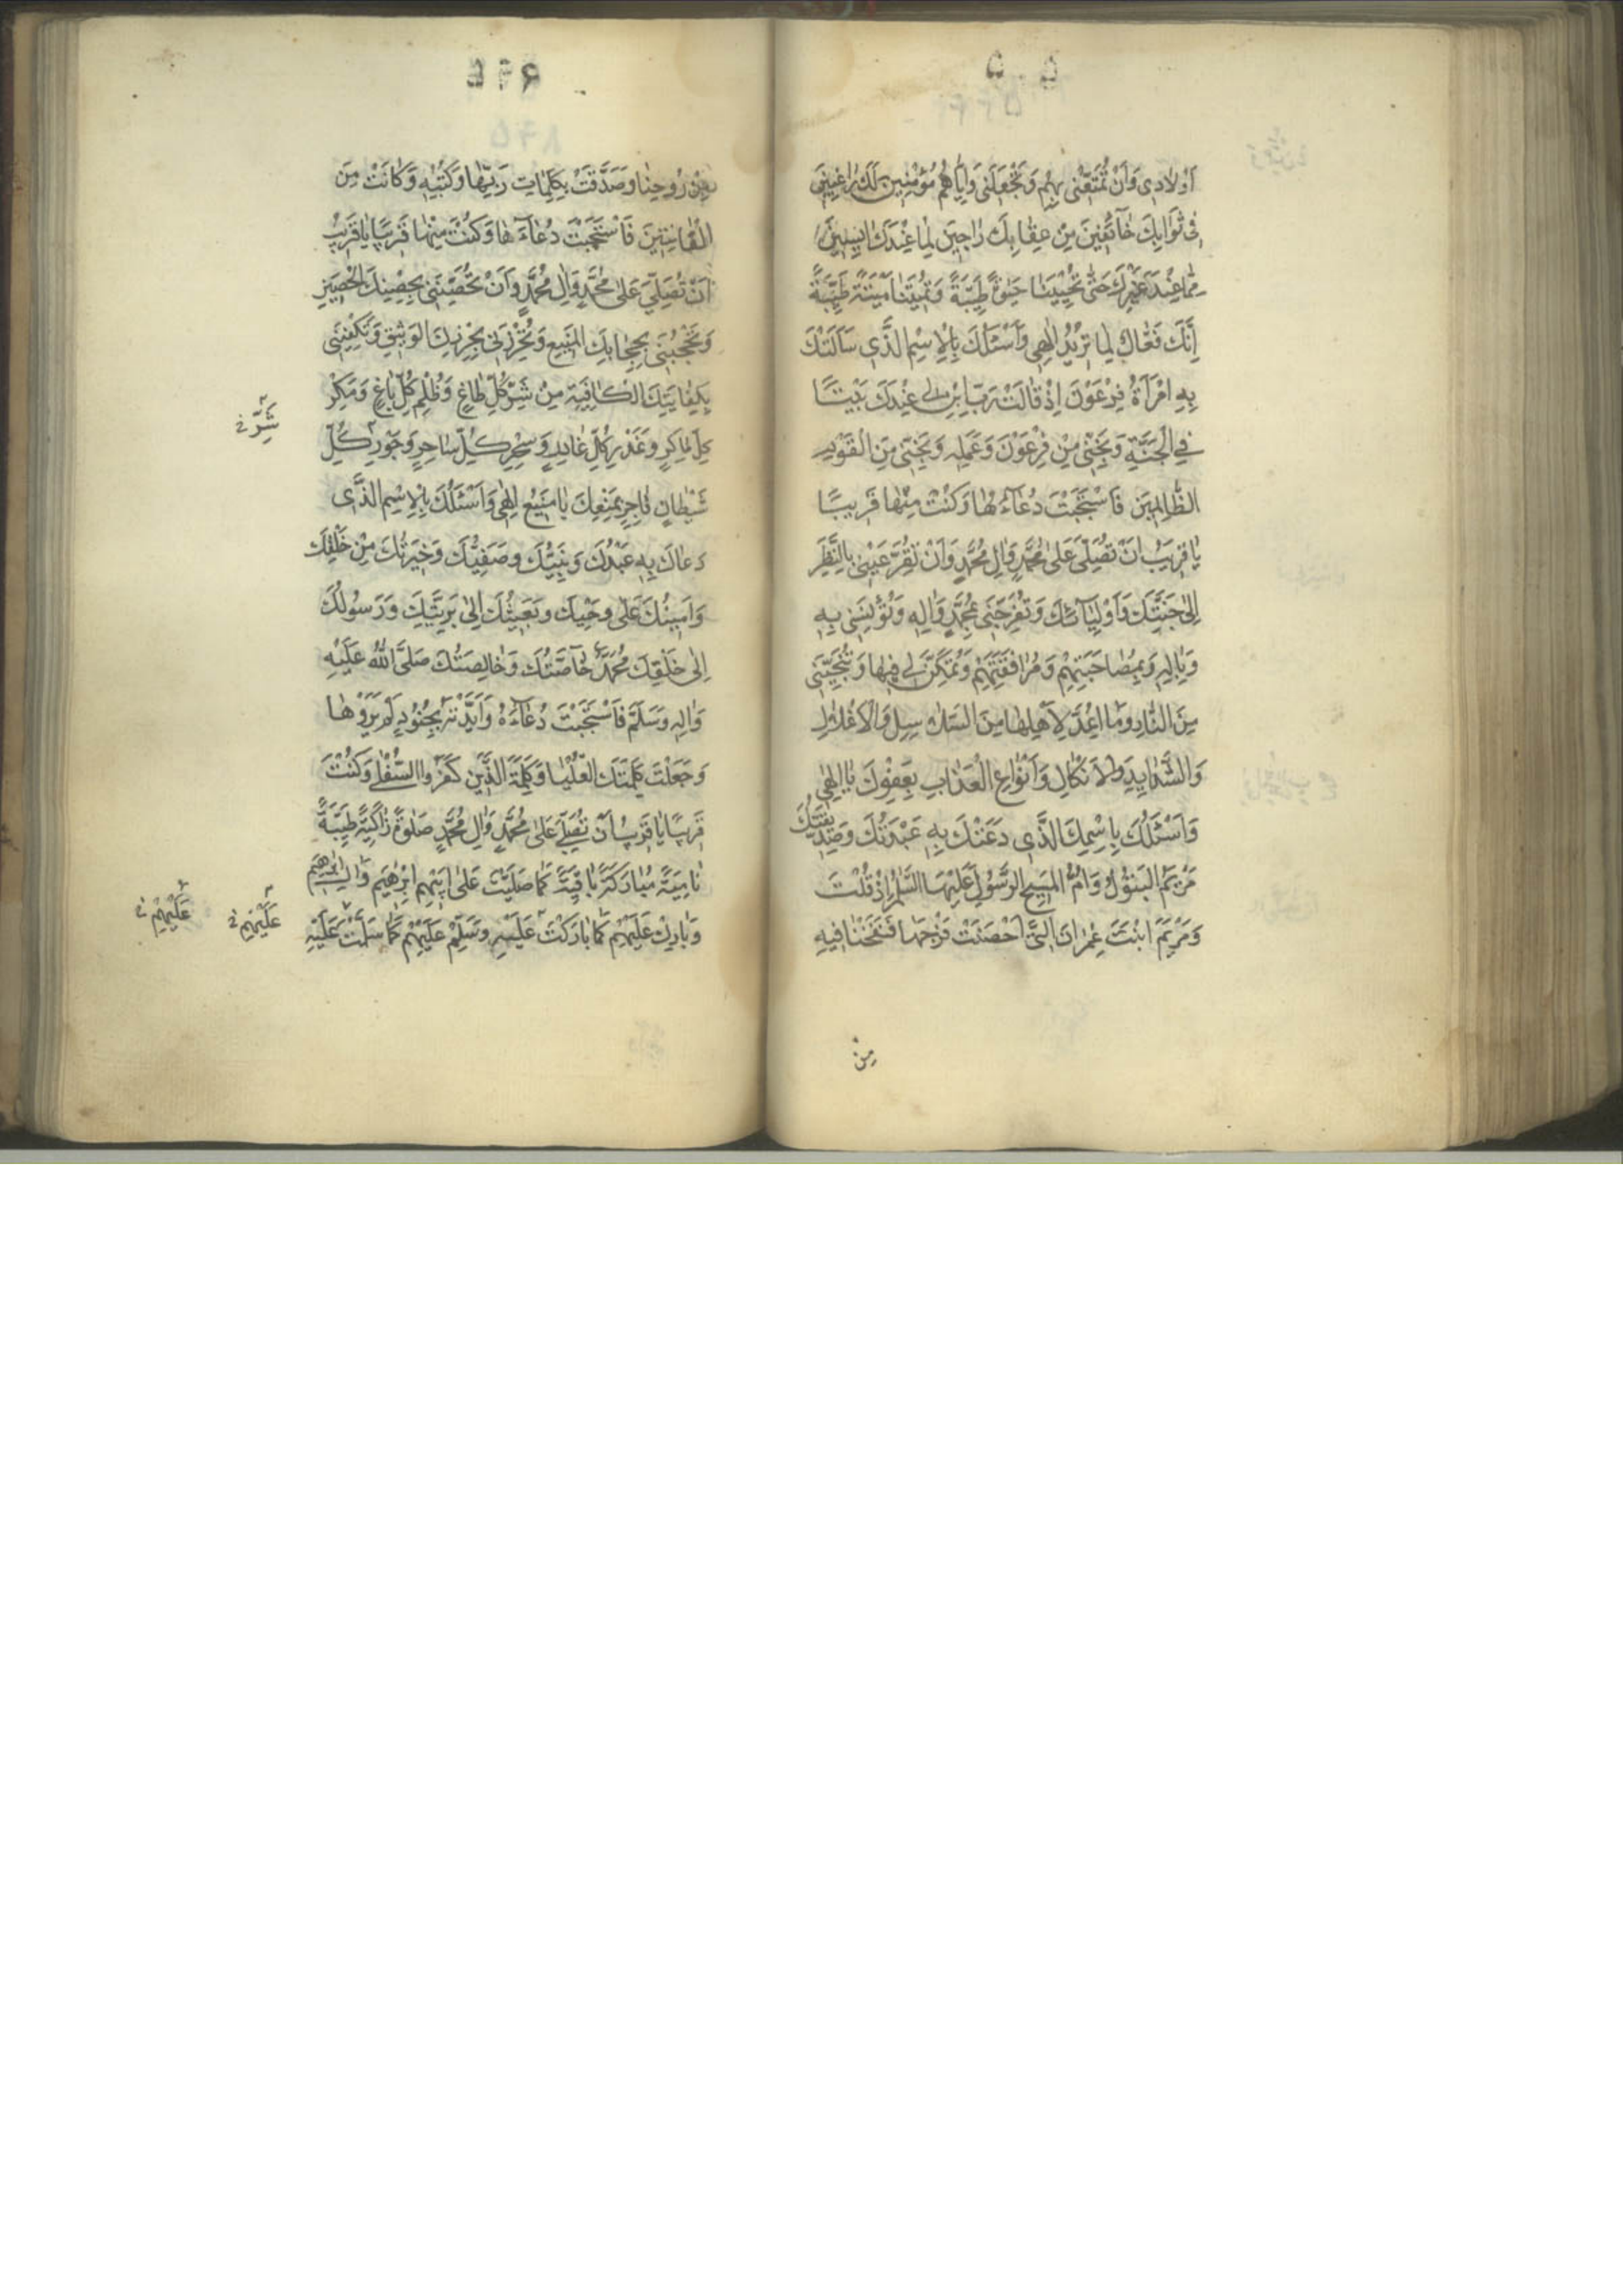 اَوْلادِی وَاَنْ تُمَتِّعَنی بِهِمْ وَتَجْعَلَنی وَاِیّاهُمْ مُؤْمِنینَ لَكَ راغِبینَ
فی ثَوابِكَ خآئِفینَ مِنْ عِقابِكَ راجینَ لِما عِنْدَكَ ایِسینَ
مِمّا عِنْدَ غَیْرِكَ حَتّی تُحْیِیَنا حَیٰوةً طَیِّبَةً وَتُمیتَنا میتَةً طَیِّبَةً
اِنَّكَ فَعّالٌ لِما تُریدُ اِلٰهی وَاَسْئَلُكَ بِالْاِسْمِ الَّذی سَاَلَتْكَ
بِهِ امْرَاَةُ فِرْعَوْنَ اِذْ قالَتْ رَبِّ ابْنِ لی عِنْدَكَ بَیْتًا
فِی الْجَنَّةِ وَنَجِّنی مِنْ فِرْعَوْنَ وَعَمَلِه وَنَجِّنی مِنَ الْقَوْمِ
الظّالِمینَ فَاسْتَجَبْتَ دُعآءَها وَكُنْتَ مِنْها قَریبًا
یا قَریبُ اَنْ تُصَلِّیَ عَلی مُحَمَّدٍ وَالِ مُحَمَّدٍ وَاَنْ تُقِرَّ عَیْنی بِالنَّظَرِ
اِلی جَنَّتِكَ وَاَوْلِیآئِكَ وَتُفَرِّحَنی بِمُحَمَّدٍ وَالِه وَتُؤْنِسَنی بِه
وَبِالِه وَبِمُصاحَبَتِهِمْ وَمُرافَقَتِهِمْ وَتُمَكِّنَ لی فیها وَتُنَجِّیَنی
مِنَ النّارِ وَما اُعِدَّ لِاَهْلِها مِنَ السَّلاسِلِ وَالْاَغْلالِ
وَالشَّدایِدِ وَالْاَنْكالِ وَاَنْواعِ الْعَذابِ بِعَفْوِكَ یا اِلٰهی
وَاَسْئَلُكَ بِاسْمِكَ الَّذی دَعَتْكَ بِه عَبْدَتُكَ وَصِدّیقَتُكَ
مَرْیَمُ الْبَتُولُ وَاُمُّ الْمَسیحِ الرَّسُولِ عَلَیْهِمَا السَّلامُ اِذْ قُلْتَ
وَمَرْیَمَ ابْنَتَ عِمْرانَ الَّتی اَحْصَنَتْ فَرْجَها فَنَفَخْنا فیهِ
مِنْ
مِنْ رُوحِنا وَصَدَّقَتْ بِكَلِماتِ رَبِّها وَكُتُبِه وَكانَتْ مِنَ
الْقانِتینَ فَاسْتَجَبْتَ دُعآءَها وَكُنْتَ مِنْها قَریبًا یا قَریبُ
اَنْ تُصَلِّیَ عَلی مُحَمَّدٍ وَالِ مُحَمَّدٍ وَاَنْ تُحَصِّنَنی بِحِصْنِكَ الْحَصینِ
وَتَحْجُبَنی بِحِجابِكَ الْمَنیعِ وَتُحْرِزَنی بِحِرْزِكَ الْوَثیقِ وَتَكْفِیَنی
بِكِفایَتِكَ الْكافِیَةِ مِنْ شَرِّ كُلِّ طاغٍ وَظُلْمِ كُلِّ باغٍ وَمَكْرِ
شَرِّ خ
كُلِّ ماكِرٍ وَغَدْرِ كُلِّ غادِرٍ وَسِحْرِ كُلِّ ساحِرٍ وَجَوْرِ كُلِّ
شَیْطانٍ فاجِرٍ بِمَنْعِكَ یا مَنیعُ اِلٰهی وَاَسْئَلُكَ بِالْاِسْمِ الَّذی
دَعاكَ بِه عَبْدُكَ وَنَبِیُّكَ وَصَفِیُّكَ وَخِیَرَتُكَ مِنْ خَلْقِكَ
وَاَمینُكَ عَلی وَحْیِكَ وَبَعیثُكَ اِلی بَرِیَّتِكَ وَرَسُولُكَ
اِلی خَلْقِكَ مُحَمَّدٌ خآصَّتُكَ وَخالِصَتُكَ صَلَّی اللّٰهُ عَلَیْهِ
وَالِه وَسَلَّمَ فَاسْتَجَبْتَ دُعآءَهُ وَاَیَّدْتَهُ بِجُنُودٍ لَمْ یَرَوْها
وَجَعَلْتَ كَلِمَتَكَ الْعُلْیا وَكَلِمَةَ الَّذینَ كَفَرُوا السُّفْلی وَكُنْتَ
قَریبًا یا قَریبُ اَنْ تُصَلِّیَ عَلی مُحَمَّدٍ وَالِ مُحَمَّدٍ صَلٰوةً زاكِیَةً طَیِّبَةً
نامِیَةً مُبارَكَةً باقِیَةً كَما صَلَّیْتَ عَلی اَبیهِمْ اِبْرٰهیمَ وَالِ اِبْرٰهیمَ
وَبارِكْ عَلَیْهِمْ كَما بارَكْتَ عَلَیْهِ وَسَلِّمْ عَلَیْهِمْ كَما سَلَّمْتَ عَلَیْهِ
عَلَیْهِمْ خ
عَلَیْهِمْ خ